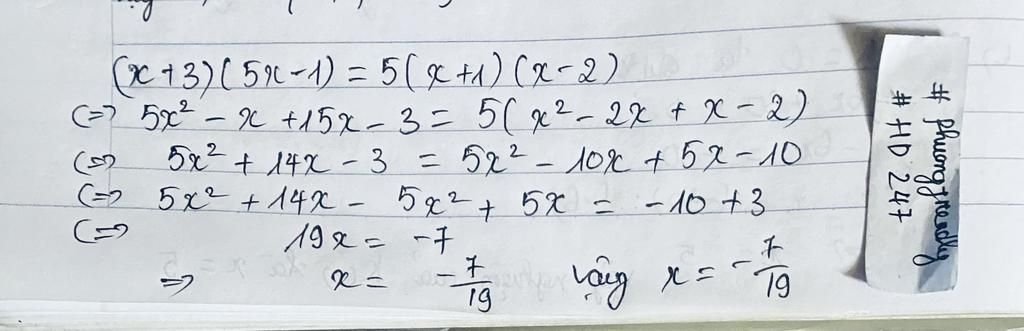 (x+3)(5x-1) = 5(x+1)(x-2)
(=> 5x² - x + 15x - 3 = 5(x² - 2x + x - 2)
(=> 5x² + 14x - 3 = 5x² - 10x + 5x - 10
(=> 5x² + 14x - 5x² + 5x = -10 + 3
(=> 19x = -7
=> x = -7/19 Vậy x = -7/19
# HD 247